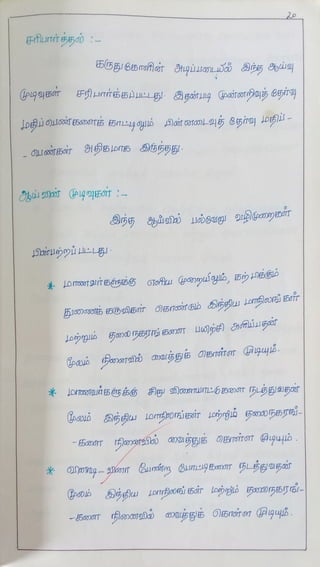 20
சரிபார்த்தல் :-
கருதுகோளின் அடிப்படையில் இந்த ஆய்வு
முடிவுகள் சரிபார்க்கப்பட்டது. இதன்படி முன்னறிவுத் தேர்வு
மதிப்பெண்களைக் காட்டிலும் பின்னடைவுத் தேர்வு மதிப் -
- பெண்கள் அதிகமாக இருந்தது.
ஆய்வின் முடிவுகள் :-
இந்த ஆய்வில் பல்வேறு வழிமுறைகள்
பின்பற்றப்பட்டது.
* மாணவர்களுக்கு எளிய முறையிலும், கற்பிக்கும்
துணைக் கருவிகள் கொண்டும் இந்திய மாநிலங்கள்
மற்றும் தலைநகரங்களை பயிற்சி அளிப்பதன்
மூலம் நினைவில் வைத்துக் கொள்ள முடியும்.
* மாணவர்களுக்கு சிறு விளையாட்டுகளை நடத்துவதன்
மூலம் இந்திய மாநிலங்கள் மற்றும் தலைநகரங்-
-களை நினைவில் வைத்துக் கொள்ள முடியும்.
* விடை - வினா போன்ற போட்டிகளை நடத்துவதன்
மூலம் இந்திய மாநிலங்கள் மற்றும் தலைநகரங்-
-களை நினைவில் வைத்துக் கொள்ள முடியும்.